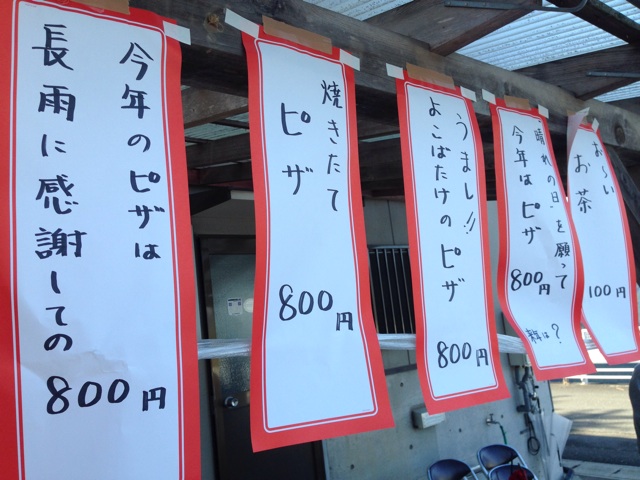 今年のピザは
長雨に感謝しての
800円
焼きたて
ピザ
800円
うまし!!
よこはたけのピザ
800円
"晴れの日"を願って
今年はピザ
800円
お〜い
お茶
100円